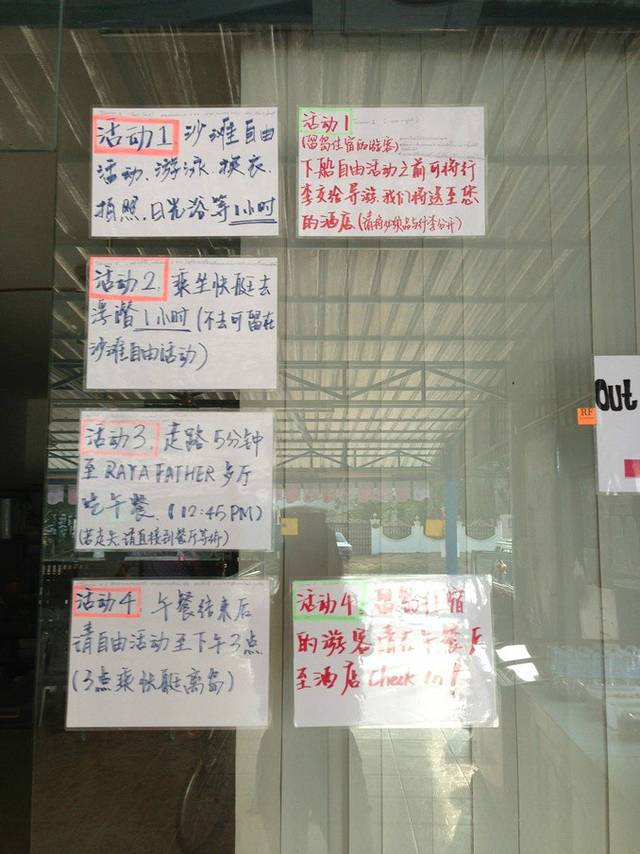 活动1 沙滩自由
活动、游泳、换衣、
拍照、日光浴等1小时
活动1
(留岛住宿的游客)
下船自由活动之前可将行
李交给导游,我们将送至您
的酒店(请将必须品与行李分开)
活动2. 乘坐快艇去
浮潜1小时(不去可留在
沙滩自由活动)
活动3. 走路5分钟
至RAYA FATHER 歺厅
吃午餐.(12:45PM)
(若走失,请直接到餐厅等候)
活动4. 午餐结束后
请自由活动至下午3点
(3点乘快艇离岛)
活动4. 留岛住宿
的游客请在午餐后
至酒店Check in!
Out
RF